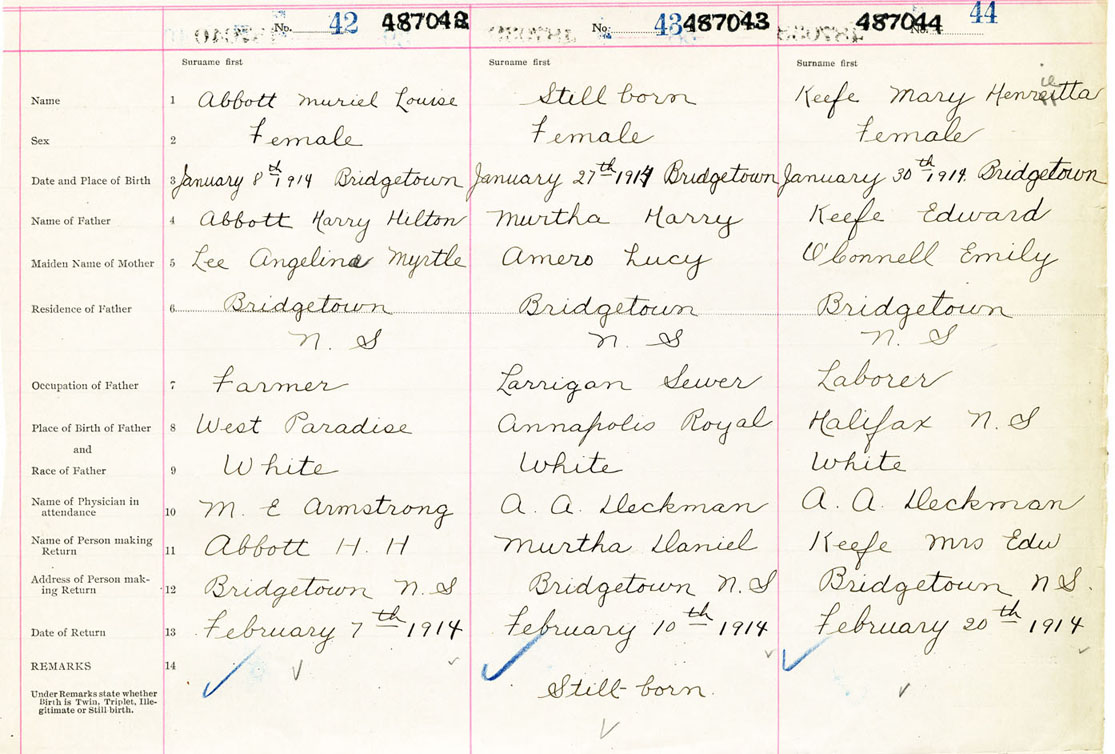 No. 42 487042 No. 43 487043 487044 No. 44
Surname first Surname first Surname first
Name 1 Abbott Muriel Louise Still born Keefe Mary Henrietta
Sex 2 Female Female Female
Date and Place of Birth 3 January 8th 1914 Bridgetown January 27th 1914 Bridgetown January 30th 1914 Bridgetown
Name of Father 4 Abbott Harry Hilton Murtha Harry Keefe Edward
Maiden Name of Mother 5 Lee Angelina Myrtle Amero Lucy O'Connell Emily
Residence of Father 6 Bridgetown Bridgetown Bridgetown
N. S N. S N. S
Occupation of Father 7 Farmer Larrigan Sewer Laborer
Place of Birth of Father 8 West Paradise Annapolis Royal Halifax N. S
and
Race of Father 9 White White White
Name of Physician in
attendance 10 M. E Armstrong A. A. Deckman A. A. Deckman
Name of Person making
Return 11 Abbott H. H Murtha Daniel Keefe Mrs Edw
Address of Person mak-
ing Return 12 Bridgetown N. S Bridgetown N. S Bridgetown N S.
Date of Return 13 February 7th 1914 February 10th 1914 February 20th 1914
REMARKS 14
Under Remarks state whether
Birth is Twin, Triplet, Ille-
gitimate or Still birth.
Still born.